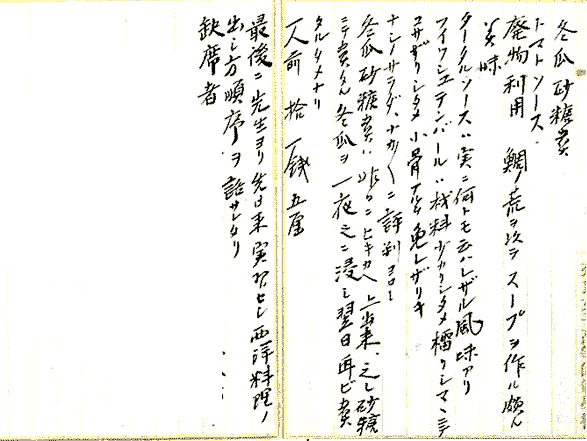 冬瓜砂糖煮
トマトソース.
廃物利用 鯛ノ荒ヲ以テスープヲ作ル頗ル
美味
タータルソースハ実ニ何トモ云ハレザル風味アリ
フイツシユテンバールハ材料少カリシタメ
コサザリシタメ小骨アルヲ免レザリキ
ナシノサラダ、ナカ〱ニ評判ヨロし
冬瓜砂糖煮ハ昨日ニヒキカヘ上出来、之レ砂糖
ニテ煮タル冬瓜ヲ一夜之ニ浸シ翌日再ビ煮
タルタメナリ
一人前 拾一銭五厘
最後ニ先生ヨリ先日来実習セシ西洋料理ノ
出し方順序ヲ話サレタリ
缺席者